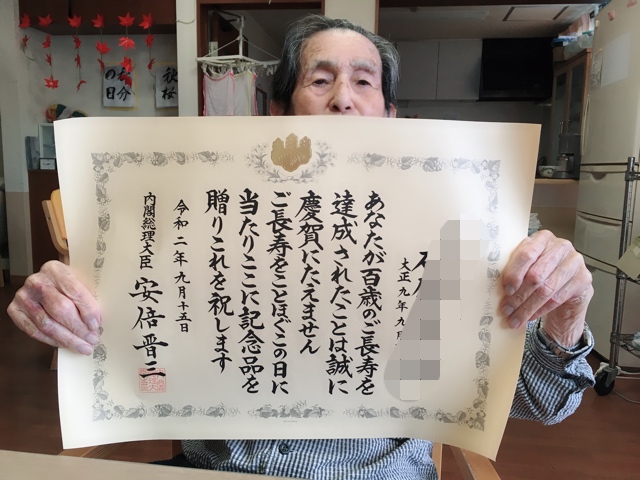 大正九年九
あなたが百歳のご長寿を
達成されたことは誠に
慶賀にたえません
ご長寿をことほぐこの日に
当たりここに記念品を
贈りこれを祝します
令和二年九月十五日
内閣総理大臣 安倍晋三
秋桜
秋分
の日